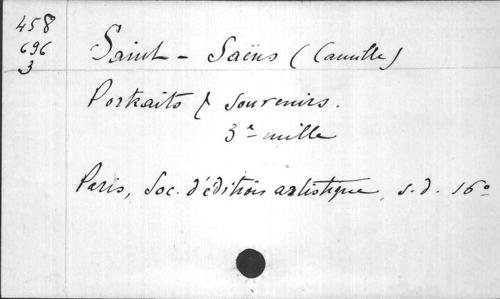 458
696
3
Saint-Saëns (Camille)
Portraits & souvenirs.
3e mille
Paris, Soc. d'éditions artistique, s.d. 16o